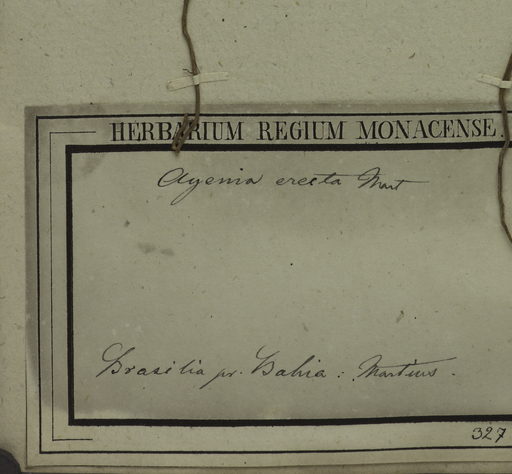 HERBARIUM REGIUM MONACENSE.
Ayenia erecta Mart
Brasilia pr. Bahia: Martius.
327